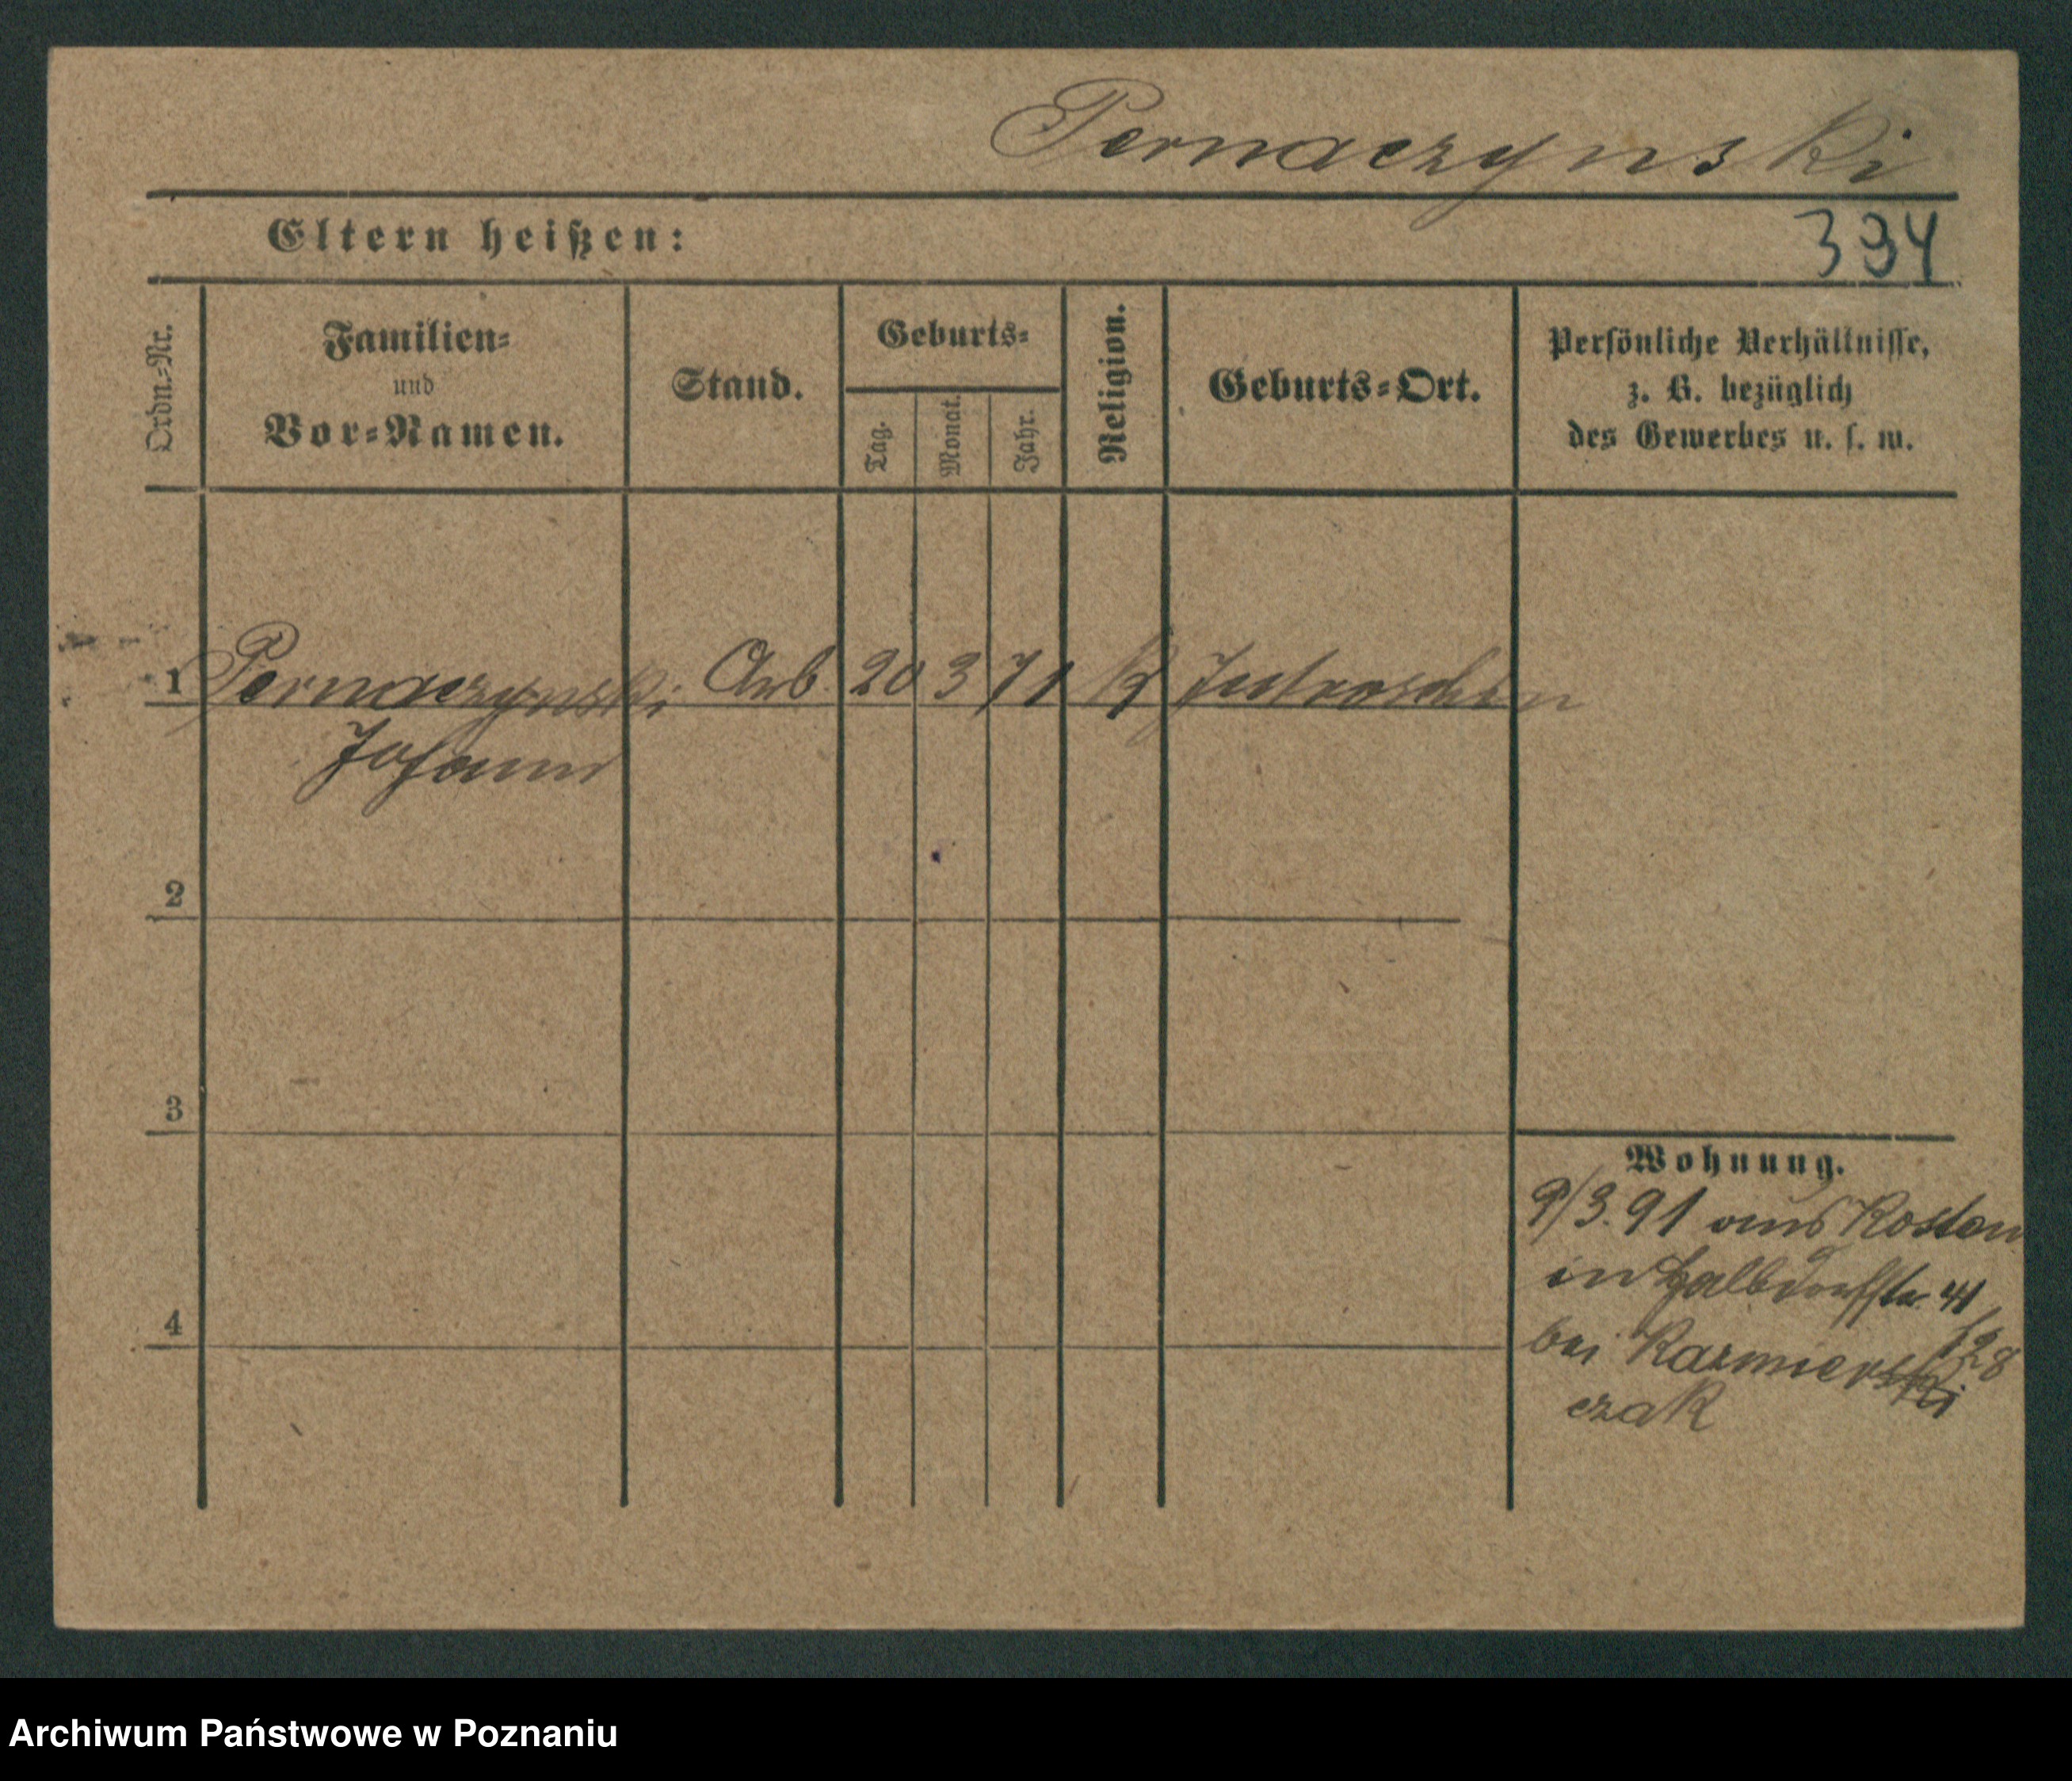 Pernaczynski
Eltern heißen:
394
Ordn.-Nr.
Familien-
und
Vor-Namen.
Stand.
Geburts-
Tag.
Monat.
Jahr.
Religion.
Geburts-Ort.
Persönliche Verhältnisse,
z. B. bezüglich
des Gewerbes u. s. w.
1 Pernaczynski Arb. 20 3 71 K Jutroschin
Johann
2
3
4
Wohnung.
9/3.91 aus Kosten
in Halbdorfstr. 41
bei Kazmierski
czak
Archiwum Państwowe w Poznaniu